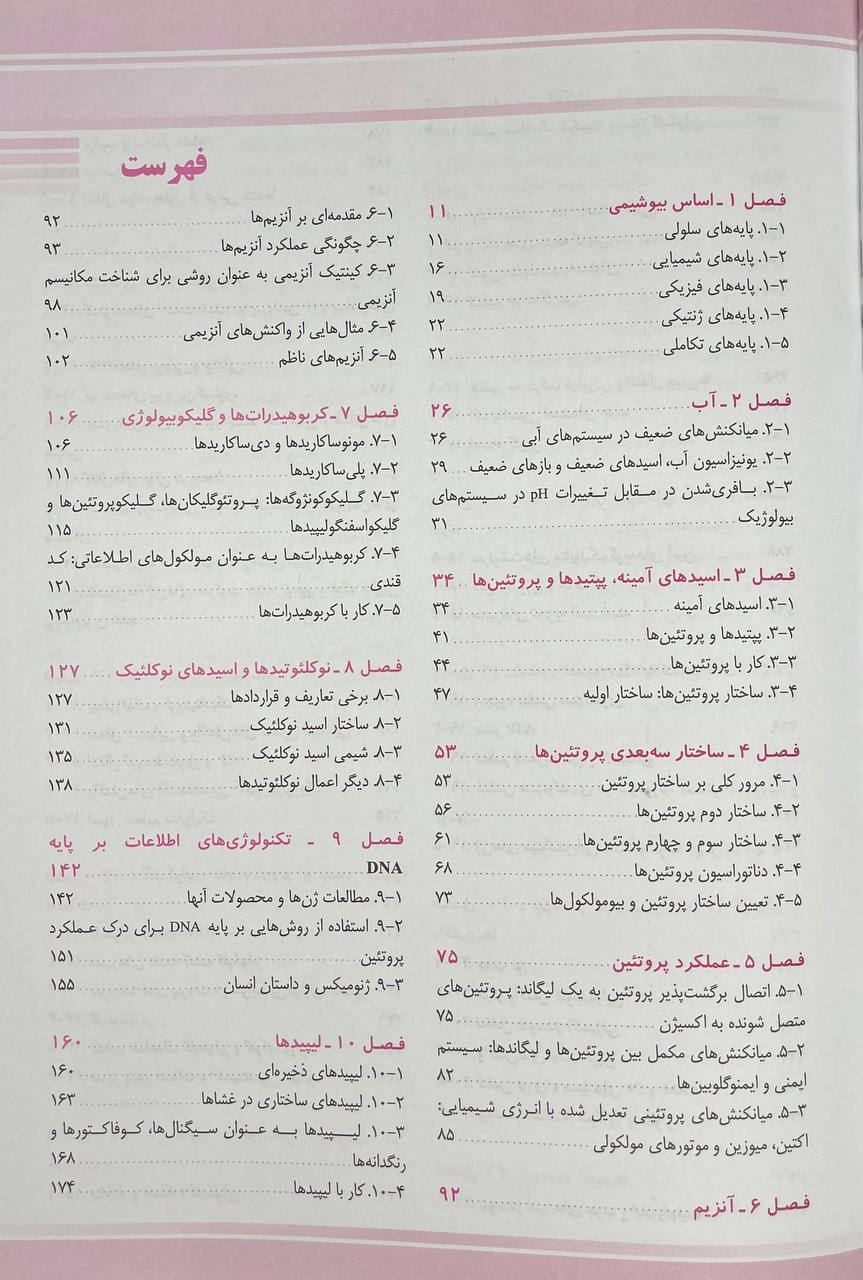 فهرست
فصل ۱ ـ اساس بیوشیمی ........ ۱۱
۱-۱. پایه‌های سلولی ........ ۱۱
۱-۲. پایه‌های شیمیایی ........ ۱۶
۱-۳. پایه‌های فیزیکی ........ ۱۹
۱-۴. پایه‌های ژنتیکی ........ ۲۲
۱-۵. پایه‌های تکاملی ........ ۲۲
فصل ۲ ـ آب ........ ۲۶
۲-۱. میانکنش‌های ضعیف در سیستم‌های آبی ........ ۲۶
۲-۲. یونیزاسیون آب، اسیدهای ضعیف و بازهای ضعیف ........ ۲۹
۲-۳. بافری‌شدن در مقابل تغییرات pH در سیستم‌های
بیولوژیک ........ ۳۱
فصل ۳ ـ اسیدهای آمینه، پپتیدها و پروتئین‌ها ........ ۳۴
۳-۱. اسیدهای آمینه ........ ۳۴
۳-۲. پپتیدها و پروتئین‌ها ........ ۴۱
۳-۳. کار با پروتئین‌ها ........ ۴۴
۳-۴. ساختار پروتئین‌ها: ساختار اولیه ........ ۴۷
فصل ۴ ـ ساختار سه‌بعدی پروتئین‌ها ........ ۵۳
۴-۱. مرور کلی بر ساختار پروتئین ........ ۵۳
۴-۲. ساختار دوم پروتئین‌ها ........ ۵۶
۴-۳. ساختار سوم و چهارم پروتئین‌ها ........ ۶۱
۴-۴. دناتوراسیون پروتئین‌ها ........ ۶۸
۴-۵. تعیین ساختار پروتئین و بیومولکول‌ها ........ ۷۳
فصل ۵ ـ عملکرد پروتئین ........ ۷۵
۵-۱. اتصال برگشت‌پذیر پروتئین به یک لیگاند: پروتئین‌های
متصل شونده به اکسیژن ........ ۷۵
۵-۲. میانکنش‌های مکمل بین پروتئین‌ها و لیگاندها: سیستم
ایمنی و ایمنوگلوبین‌ها ........ ۸۲
۵-۳. میانکنش‌های پروتئینی تعدیل شده با انرژی شیمیایی:
اکتین، میوزین و موتورهای مولکولی ........ ۸۵
فصل ۶ ـ آنزیم ........ ۹۲
۶-۱. مقدمه‌ای بر آنزیم‌ها ........ ۹۲
۶-۲. چگونگی عملکرد آنزیم‌ها ........ ۹۳
۶-۳. کینتیک آنزیمی به عنوان روشی برای شناخت مکانیسم
آنزیمی ........ ۹۸
۶-۴. مثال‌هایی از واکنش‌های آنزیمی ........ ۱۰۱
۶-۵. آنزیم‌های ناظم ........ ۱۰۲
فصل ۷ ـ کربوهیدرات‌ها و گلیکوبیولوژی ........ ۱۰۶
۷-۱. مونوساکاریدها و دی‌ساکاریدها ........ ۱۰۶
۷-۲. پلی‌ساکاریدها ........ ۱۱۱
۷-۳. گلیکوکونژوگه‌ها: پروتئوگلیکان‌ها، گلیکوپروتئین‌ها و
گلیکواسفنگولیپیدها ........ ۱۱۵
۷-۴. کربوهیدرات‌ها به عنوان مولکول‌های اطلاعاتی: کد
قندی ........ ۱۲۱
۷-۵. کار با کربوهیدرات‌ها ........ ۱۲۳
فصل ۸ ـ نوکلئوتیدها و اسیدهای نوکلئیک ........ ۱۲۷
۸-۱. برخی تعاریف و قراردادها ........ ۱۲۷
۸-۲. ساختار اسید نوکلئیک ........ ۱۳۱
۸-۳. شیمی اسید نوکلئیک ........ ۱۳۵
۸-۴. دیگر اعمال نوکلئوتیدها ........ ۱۳۸
فصل ۹ ـ تکنولوژی‌های اطلاعات بر پایه
DNA ........ ۱۴۲
۹-۱. مطالعات ژن‌ها و محصولات آنها ........ ۱۴۲
۹-۲. استفاده از روش‌هایی بر پایه DNA برای درک عملکرد
پروتئین ........ ۱۵۱
۹-۳. ژنومیکس و داستان انسان ........ ۱۵۵
فصل ۱۰ ـ لیپیدها ........ ۱۶۰
۱۰-۱. لیپیدهای ذخیره‌ای ........ ۱۶۰
۱۰-۲. لیپیدهای ساختاری در غشاها ........ ۱۶۳
۱۰-۳. لیپیدها به عنوان سیگنال‌ها، کوفاکتورها و
رنگدانه‌ها ........ ۱۶۸
۱۰-۴. کار با لیپیدها ........ ۱۷۴